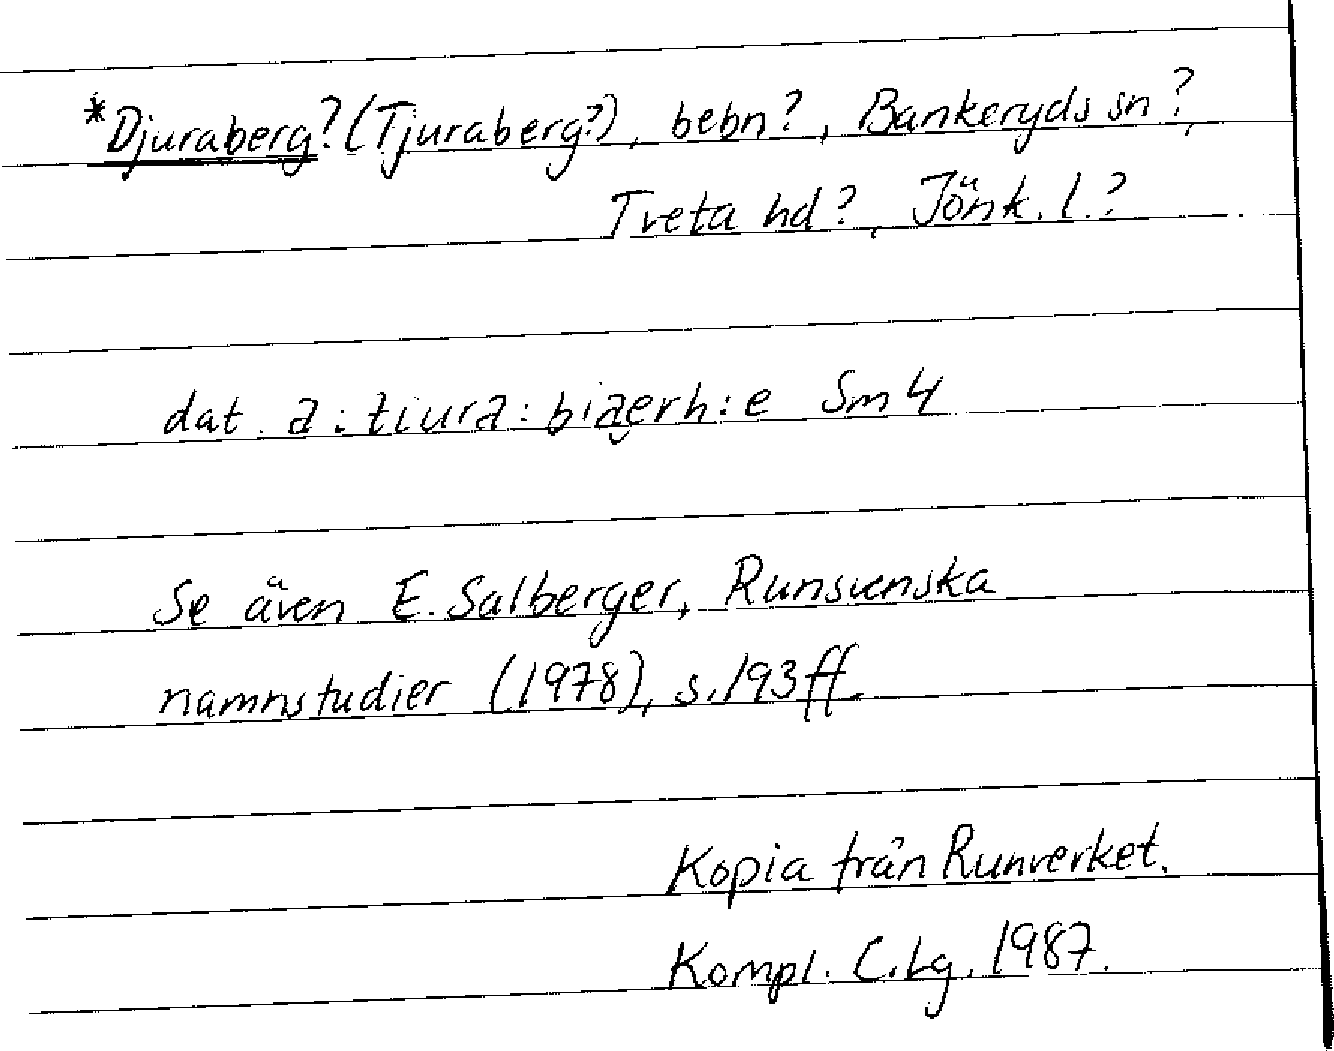 *Djuraberg? (Tjuraberg?), bebn?, Bankeryds sn?,
Tveta hd?, Jönk. l.?
dat. a : tiura : biągrh : e Sm 4
Se även E. Salberger, Runsvenska
namnstudier (1978), s. 193 ff.
Kopia från Runverket.
Kompl. C. Lg. 1987.